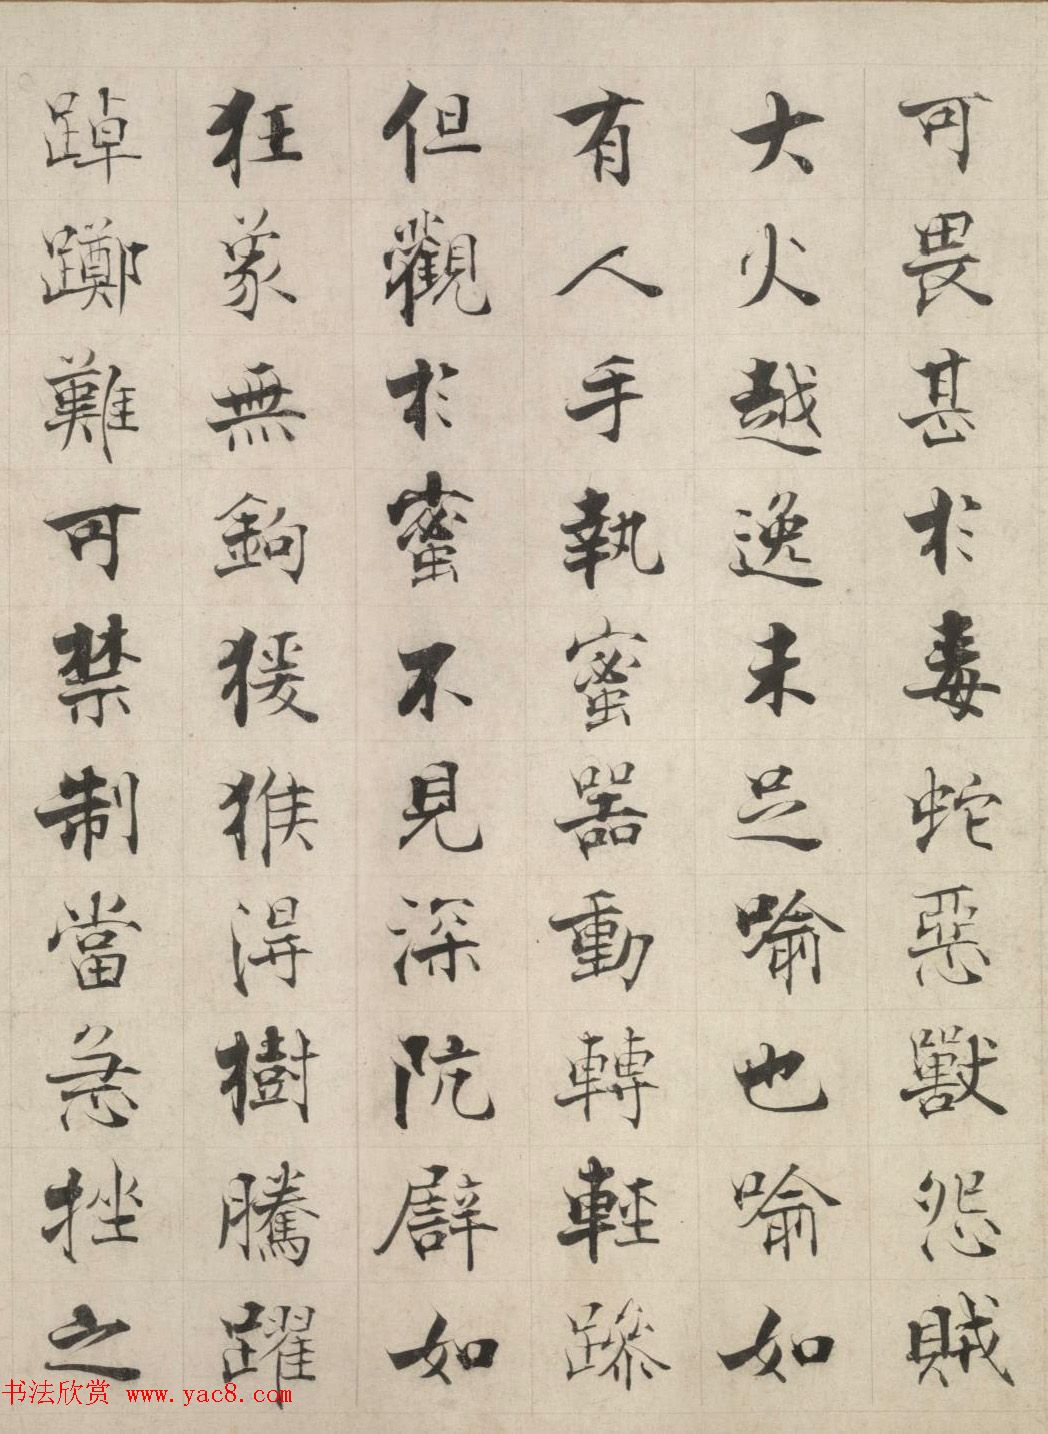 可畏甚於毒蛇惡獸怨賊
大火越逸未足喻也喻如
有人手執蜜器動轉輕躁
但觀於蜜不見深阬譬如
狂象無鉤猨猴得樹騰躍
踔躑難可禁制當急挫之
书法欣赏 www.yac8.com